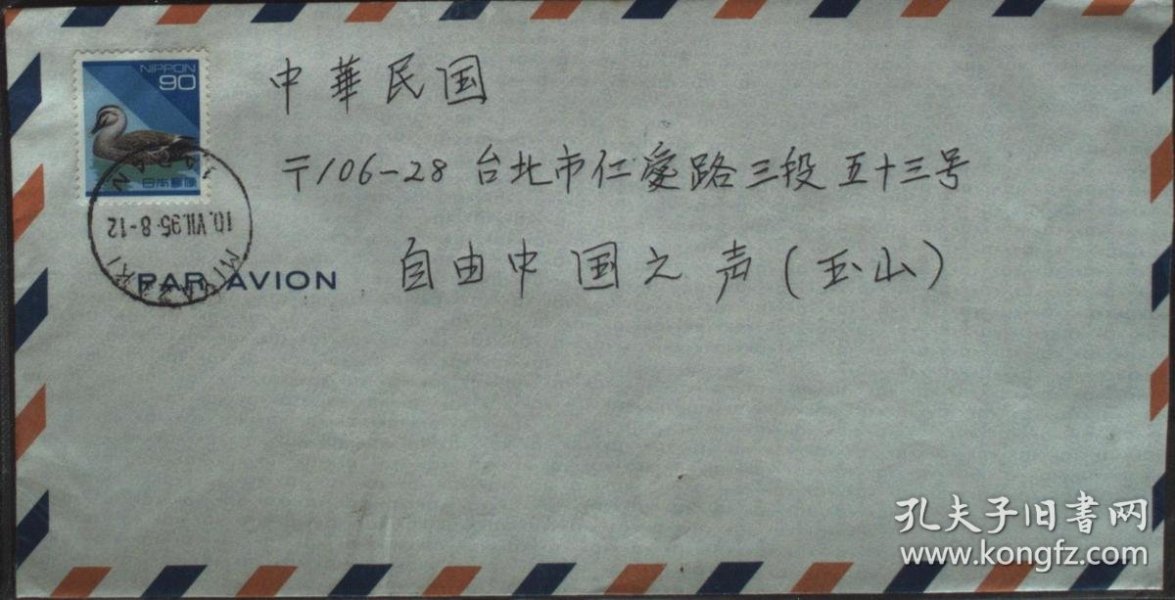 NIPPON
90
日本郵便
中華民国
〒106-28 台北市仁愛路三段五十三号
自由中国之声(玉山)
10.VII.95.8-12
PAR AVION
孔夫子旧書网
www.kongfz.com